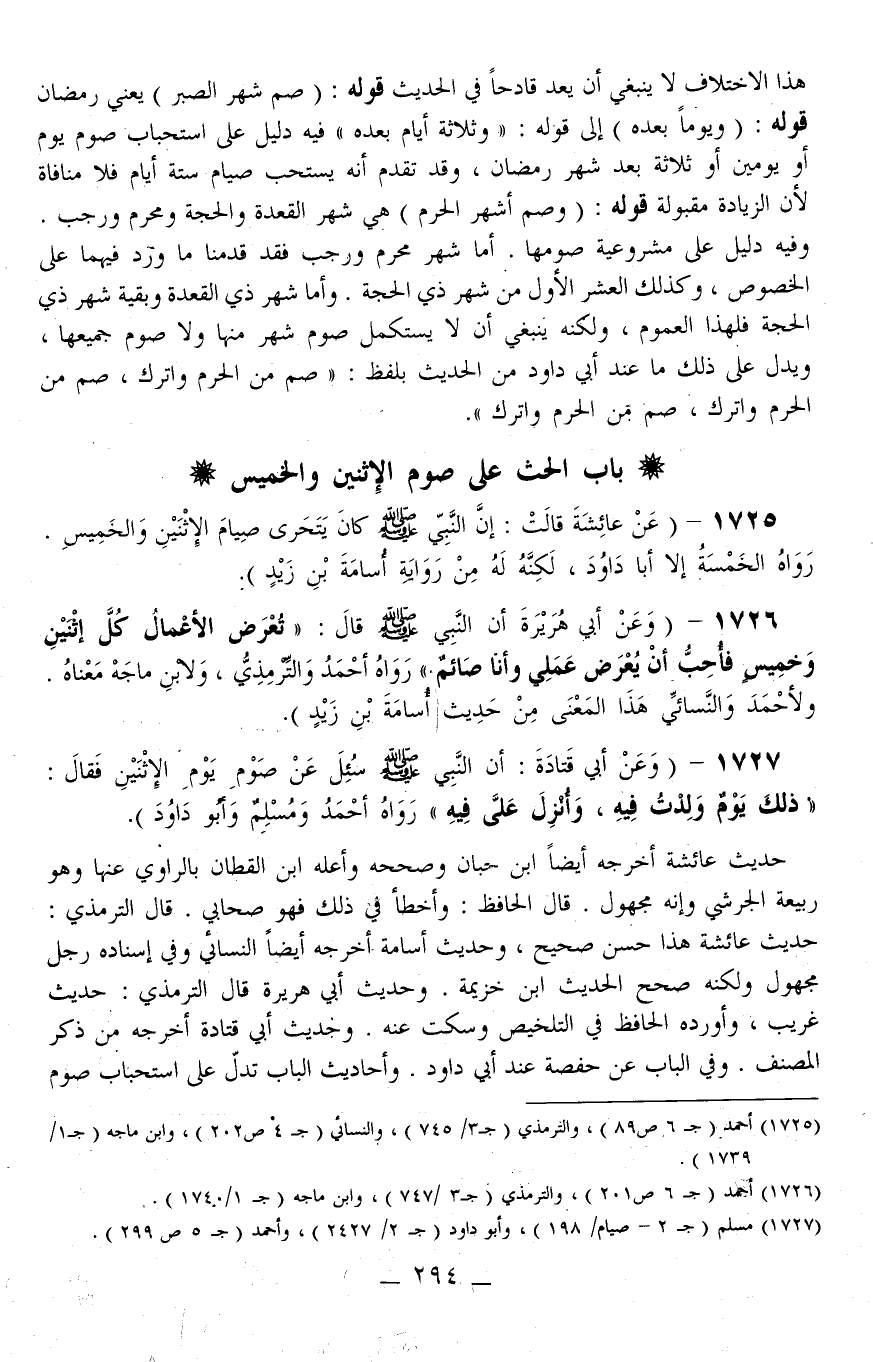 هذا الاختلاف لا ينبغي أن يعد قادحاً في الحديث قوله : ( صم شهر الصبر ) يعني رمضان
قوله : ( ويوماً بعده ) إلى قوله : « وثلاثة أيام بعده » فيه دليل على استحباب صوم يوم
أو يومين أو ثلاثة بعد شهر رمضان ، وقد تقدم أنه يستحب صيام ستة أيام فلا منافاة
لأن الزيادة مقبولة قوله : ( وصم أشهر الحرم ) هي شهر القعدة والحجة ومحرم ورجب .
وفيه دليل على مشروعية صومها . أما شهر محرم ورجب فقد قدمنا ما ورد فيهما على
الخصوص ، وكذلك العشر الأول من شهر ذي الحجة . وأما شهر ذي القعدة وبقية شهر ذي
الحجة فلهذا العموم ، ولكنه ينبغي أن لا يستكمل صوم شهر منها ولا صوم جميعها ،
ويدل على ذلك ما عند أبي داود من الحديث بلفظ : « صم من الحرم واترك ، صم من
الحرم واترك ، صم من الحرم واترك ».
باب الحث على صوم الإثنين والخميس
١٧٢٥ – ( عَنْ عائِشةَ قالَتْ : إنَّ النَّبِيّ ﷺ كانَ يَتَحَرى صيامَ الإثْنَيْنِ وَالخَمِيسِ .
رَوَاهُ الخَمْسَةُ إلا أبا دَاوُدَ ، لَكِنَّهُ لَهُ مِنْ رَوَايَةِ أُسامَةَ بْنِ زَيْدٍ ).
١٧٢٦ – ( وَعَنْ أبي هُرَيْرَةَ أن النَّبي ﷺ قالَ : « تُعْرَض الأعْمالُ كُلَّ إثْنَيْنِ
وَخمِيسٍ فأُحِبُّ أنْ يُعْرَض عَمَلِي وأنا صَائمٌ » رَوَاهُ أحْمَدُ وَالتِّرْمِذِيُّ ، وَلابْنِ ماجَهْ مَعْناهُ .
ولأحْمَدَ وَالنَّسائيِّ هَذَا المَعْنَى مِنْ حَدِيث أُسامَةَ بْنِ زَيْدٍ ).
١٧٢٧ – ( وَعَنْ أبي قَتادَةَ : أن النَّبي ﷺ سُئِلَ عَنْ صَوْمِ يَوْمِ الإِثْنَيْنِ فَقالَ :
« ذلكَ يَوْمٌ وَلِدْتُ فِيهِ ، وَأُنْزِلَ عَلىَّ فِيهِ » رَوَاهُ أحْمَدُ وَمُسْلِمٌ وَأبُو دَاوُدَ ).
حديث عائشة أخرجه أيضاً ابن حبان وصححه وأعله ابن القطان بالراوي عنها وهو
ربيعة الجرشي وإنه مجهول . قال الحافظ : وأخطأ في ذلك فهو صحابي . قال الترمذي :
حديث عائشة هذا حسن صحيح ، وحديث أسامة أخرجه أيضاً النسائي وفي إسناده رجل
مجهول ولكنه صحح الحديث ابن خزيمة . وحديث أبي هريرة قال الترمذي : حديث
غريب ، وأورده الحافظ في التلخيص وسكت عنه . وحديث أبي قتادة أخرجه من ذكر
المصنف . وفي الباب عن حفصة عند أبي داود . وأحاديث الباب تدلّ على استحباب صوم
(١٧٢٥) أحمد ( جـ ٦ ص٨٩ ) ، والترمذي ( جـ٣/ ٧٤٥ ) ، والنسائي ( جـ ٤ ص٢٠٢ ) ، وابن ماجه ( جـ١/
١٧٣٩ ) .
(١٧٢٦) أحمد ( جـ ٦ ص٢٠١ ) ، والترمذي ( جـ٣ /٧٤٧ ) ، وابن ماجه ( جـ ١/١٧٤٠ ) .
(١٧٢٧) مسلم ( جـ ٢ – صيام/ ١٩٨ ) ، وأبو داود ( جـ ٢/ ٢٤٢٧ ) ، وأحمد ( جـ ٥ ص ٢٩٩ ) .
— ٢٩٤ —